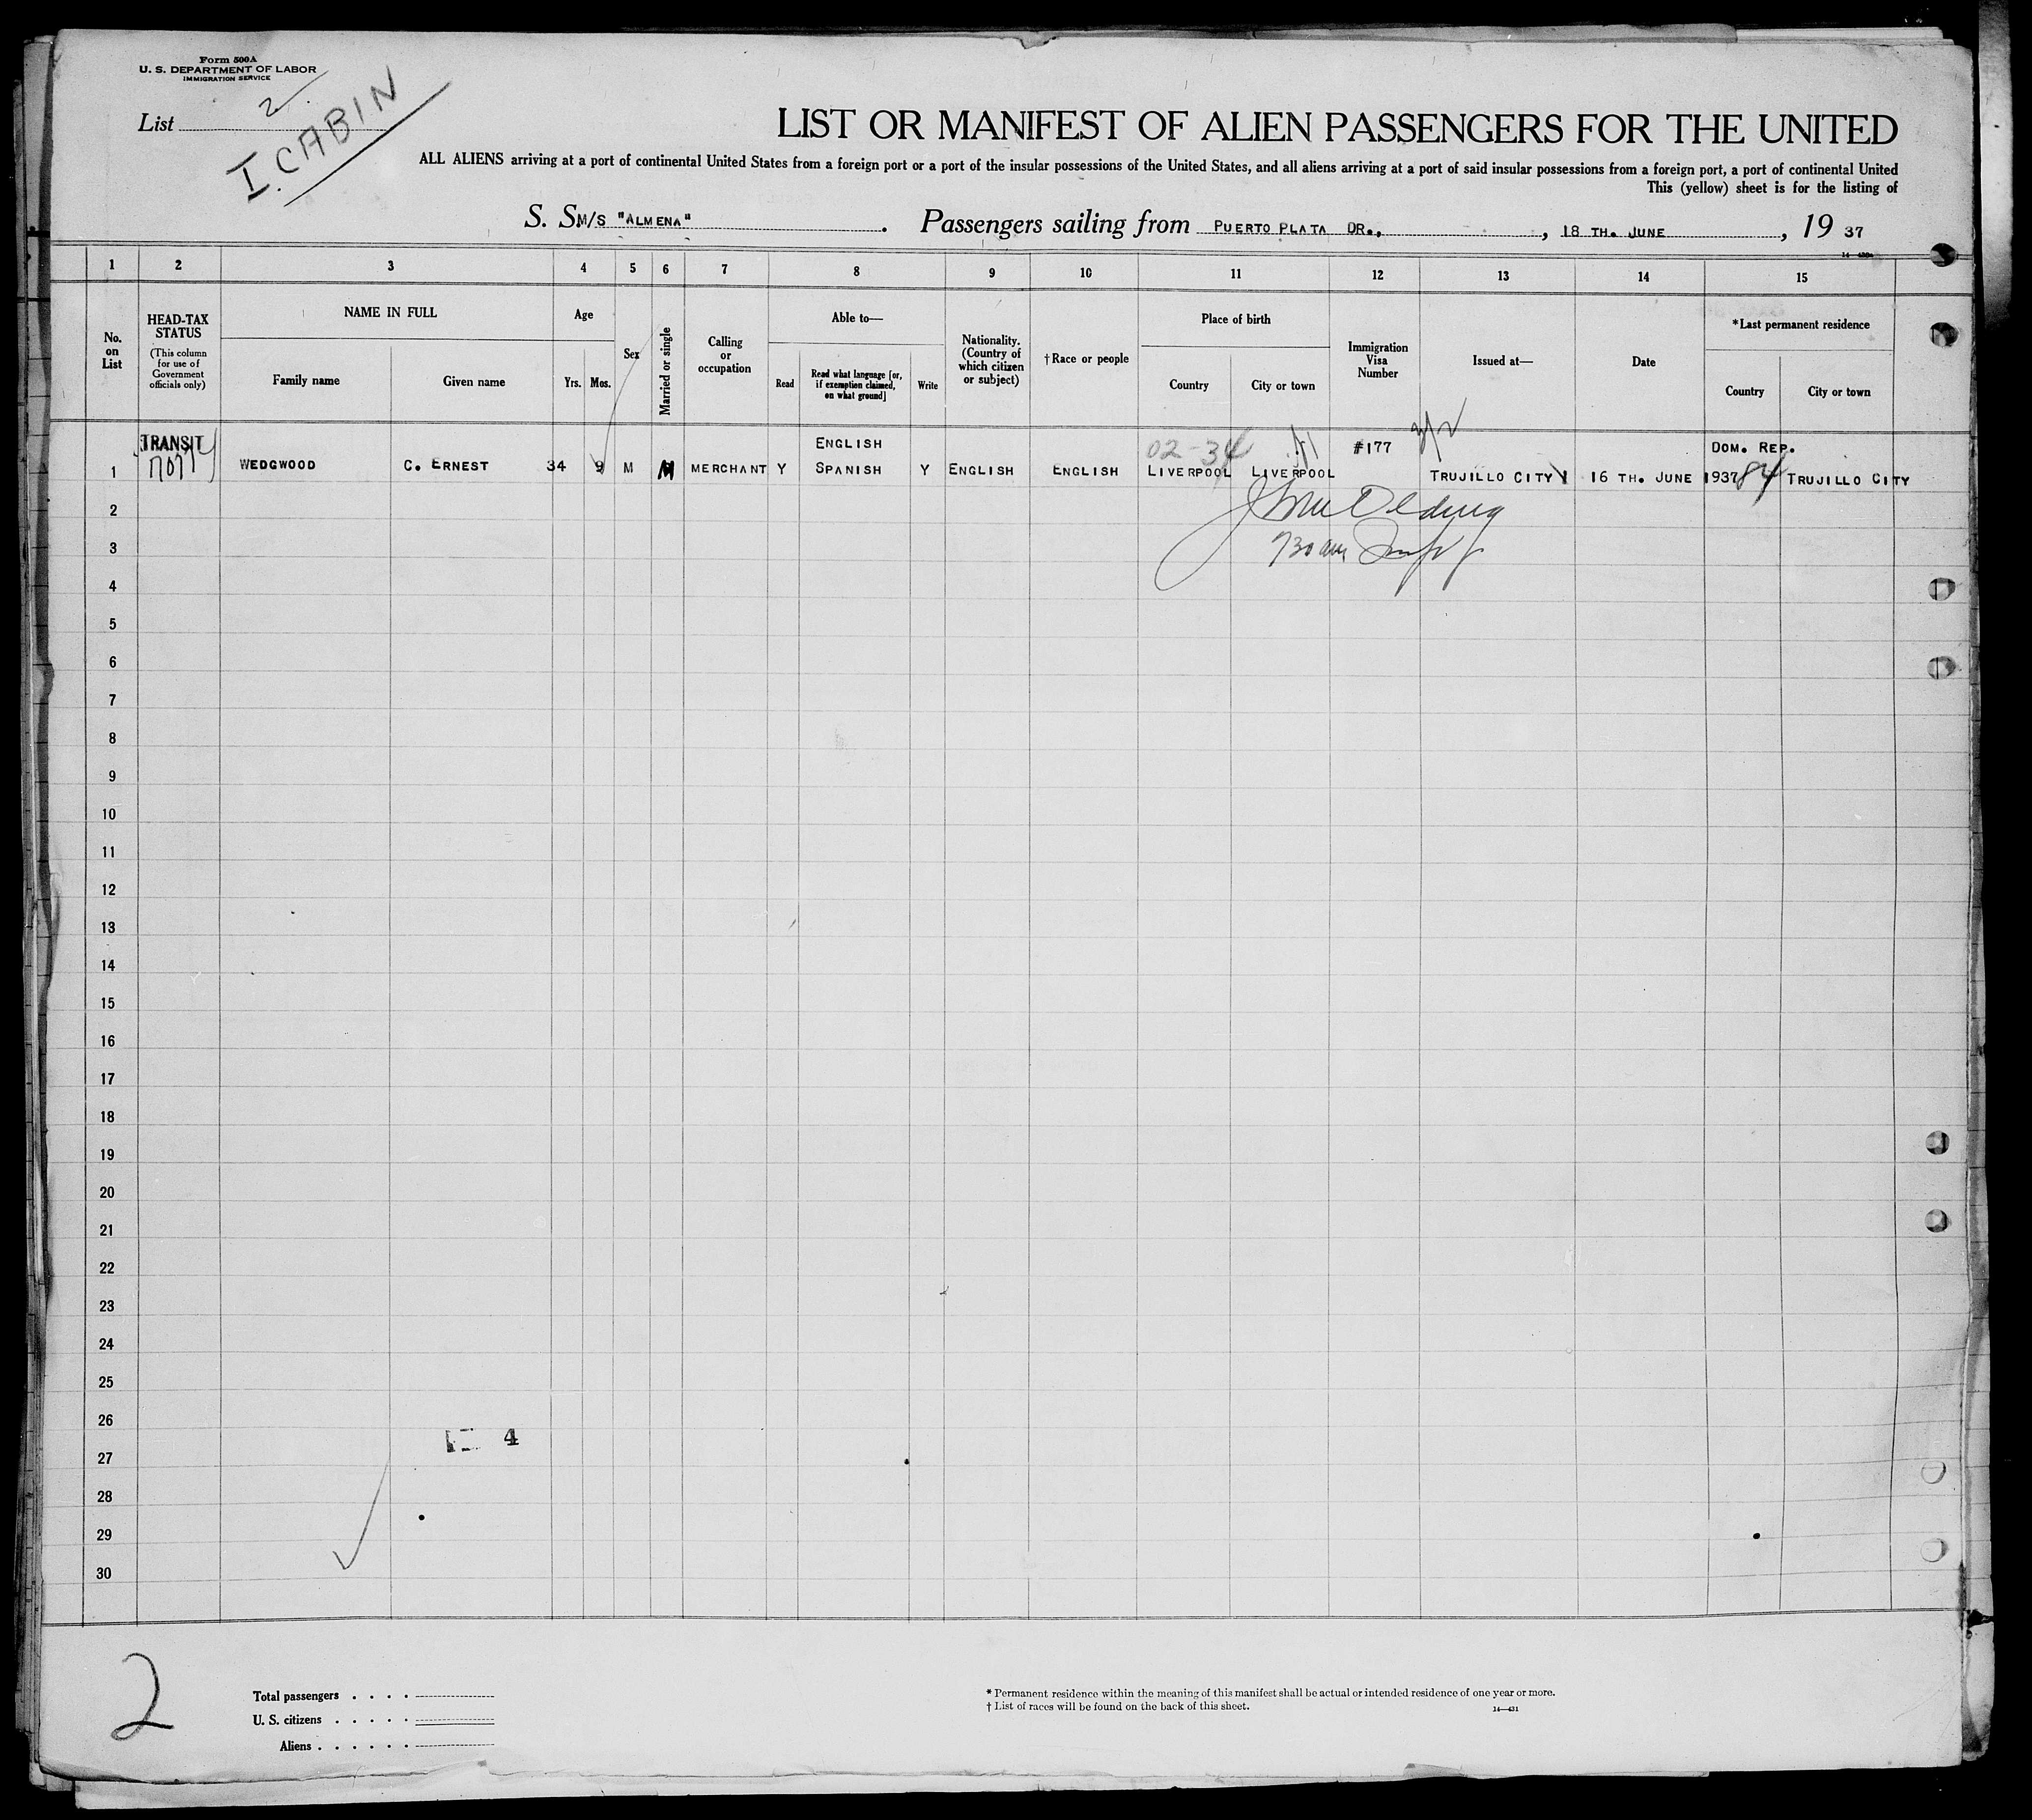 Form 500A
U. S. DEPARTMENT OF LABOR
IMMIGRATION SERVICE
List 2
I. CABIN
LIST OR MANIFEST OF ALIEN PASSENGERS FOR THE UNITED
ALL ALIENS arriving at a port of continental United States from a foreign port or a port of the insular possessions of the United States, and all aliens arriving at a port of said insular possessions from a foreign port, a port of continental United
This (yellow) sheet is for the listing of
S. S. M/S "ALMENA" . Passengers sailing from PUERTO PLATA DR., , 18 TH. JUNE , 19 37
1 2 3 4 5 6 7 8 9 10 11 12 13 14 15
No. on List
HEAD-TAX STATUS
(This column for use of Government officials only)
NAME IN FULL
Family name Given name
Age
Yrs. Mos.
Sex
Married or single
Calling or occupation
Able to—
Read Read what language [or, if exemption claimed, on what ground] Write
Nationality. (Country of which citizen or subject)
†Race or people
Place of birth
Country City or town
Immigration Visa Number
Issued at—
Date
*Last permanent residence
Country City or town
TRANSIT ENGLISH 02-34 #177 DOM. REP.
1 WEDGWOOD C. ERNEST 34 9 M M MERCHANT Y SPANISH Y ENGLISH ENGLISH LIVERPOOL LIVERPOOL TRUJILLO CITY 16 TH. JUNE 1937 84 TRUJILLO CITY
2
3 730 am
4
5
6
7
8
9
10
11
12
13
14
15
16
17
18
19
20
21
22
23
24
25
26
4
27
28
29
30
2
Total passengers . . . .
U. S. citizens . . . . .
Aliens . . . . . .
* Permanent residence within the meaning of this manifest shall be actual or intended residence of one year or more.
† List of races will be found on the back of this sheet.
14—431